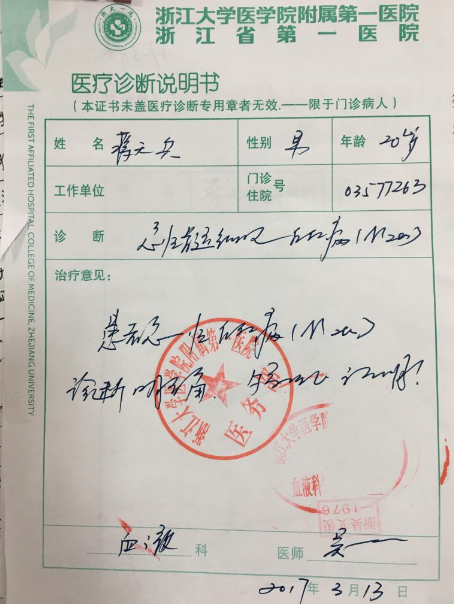 浙江大学医学院附属第一医院
浙江省第一医院
医疗诊断说明书
(本证书未盖医疗诊断专用章者无效.——限于门诊病人)
姓 名 性别 男 年龄 20岁
工作单位 门诊住院号 03577263
诊 断 急性髓细胞白血病(M2a)
治疗意见:
患者急性白血病(M2a)
诊断明确.
浙江大学医学院附属第一医院
医务部
血液科
1976
血液 科 医师 吴
2017年3月13日
THE FIRST AFFILIATED HOSPITAL, COLLEGE OF MEDICINE, ZHEJIANG UNIVERSITY